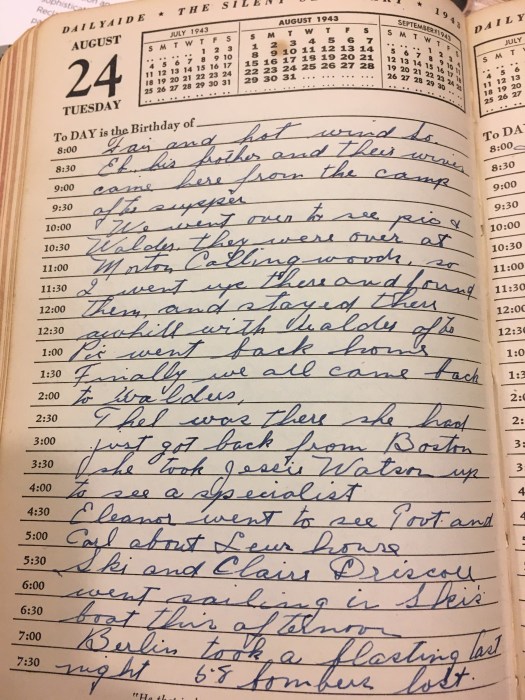 DAILYAIDE ★ THE SILENT
AUGUST
24
TUESDAY
JULY 1943
S M T W T F S
1 2 3
4 5 6 7 8 9 10
11 12 13 14 15 16 17
18 19 20 21 22 23 24
25 26 27 28 29 30 31
AUGUST 1943
S M T W T F S
1 2 3 4 5 6 7
8 9 10 11 12 13 14
15 16 17 18 19 20 21
22 23 24 25 26 27 28
29 30 31
SEPTEMBER 1943
S M T W T F S
1 2 3 4
5 6 7 8 9 10 11
12 13 14 15 16 17 18
19 20 21 22 23 24 25
26 27 28 29 30
To DAY is the Birthday of
8:00 Fair and hot wind So.
8:30 Eb. his brother and their wives
9:00 came here from the camp
9:30 after supper
10:00 We went over to see pic &
10:30 Waldes, they were over at
11:00 Morton Callingwoods, so
11:30 I went up there and found
12:00 them, and stayed there
12:30 awhile with waldes after
1:00 Pic went back home
1:30 Finally we all came back
2:00 to waldus.
2:30 Thel was there she had
3:00 just got back from Boston
3:30 she took Jessie Watson up
4:00 to see a specialist
4:30 Eleanor went to see Toot and
5:00 Carl about Leur house
5:30 Ski and Claire Driscoll
6:00 went sailing in Ski's
6:30 boat this afternoon
7:00 Berlin took a blasting last
7:30 night 58 bombers lost.